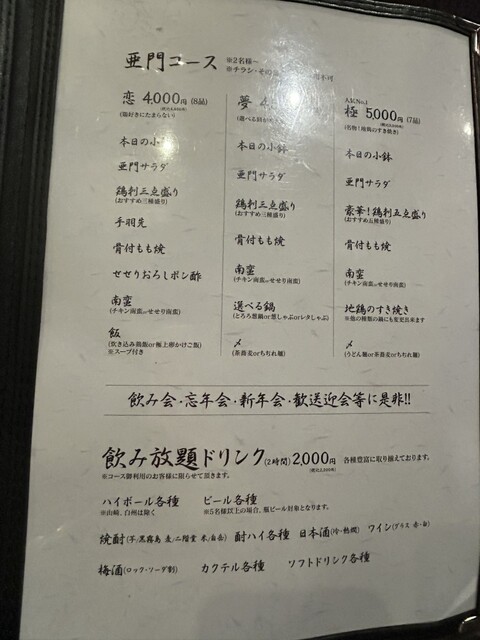 亜門コース ※2名様～
※チラシ・その
恋 4,000円 (8品)
本日の小鉢
亜門サラダ
鶏刺三点盛り
(おすすめ三種盛り)
手羽先
骨付もも焼
せせりおろしポン酢
南蛮
(チキン南蛮orせせり南蛮)
飯
※スープ付き
夢
本日の小鉢
亜門サラダ
鶏刺三点盛り
(おすすめ三種盛り)
骨付もも焼
南蛮
(チキン南蛮orせせり南蛮)
選べる鍋
〆
(茶蕎麦orちぢれ麺)
人気No.1
極 5,000円 (7品)
(名物!地鶏のすき焼き)
本日の小鉢
亜門サラダ
豪華!鶏刺五点盛り
(おすすめ五種盛り)
骨付もも焼
南蛮
(チキン南蛮orせせり南蛮)
地鶏のすき焼き
※他の種類の鍋にも変更出来ます
〆
(うどん麺or茶蕎麦orちぢれ麺)
飲み会・忘年会・新年会・歓送迎会等に是非!!
飲み放題ドリンク(2時間) 2,000円 各種豊富に取り揃えております。
※コース御利用のお客様に限らせて頂きます。
ハイボール各種 ビール各種
※山崎、白州は除く ※5名様以上の場合、瓶ビール対象となります。
焼酎(芋/黒霧島 麦/二階堂 米/白岳) 酎ハイ各種 日本酒(冷・熱燗) ワイン(グラス 赤・白)
梅酒(ロック・ソーダ割) カクテル各種 ソフトドリンク各種